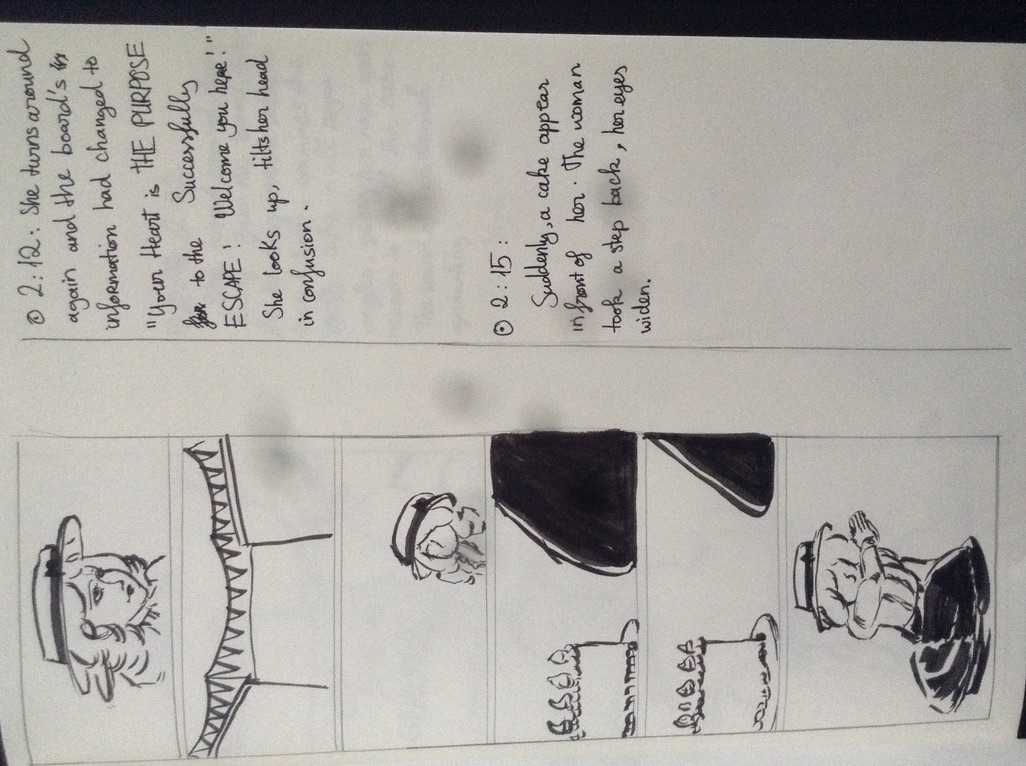 ⊙ 2:12: She turns around
again and the board's
information had changed to
"Your Heart is THE PURPOSE
to the Successfully
ESCAPE! Welcome you here!"
She looks up, tilts her head
in confusion.
⊙ 2:15:
Suddenly, a cake appear
in front of her. The woman
took a step back, her eyes
widen.